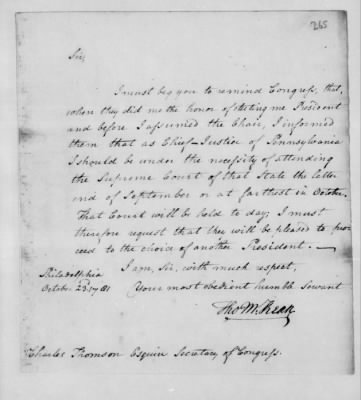 265
Sir,
I must beg you to remind Congress, that,
when they did me the honor of electing me President
and before I assumed the Chair, I informed
them that as Chief-Justice of Pennsylvania
I should be under the necessity of attending
the Supreme Court of that State the latter
end of September or at farthest in October.
That Court will be held to day, I must
therefore request that they will be pleased to proc
ceed to the choice of another President.
I am, Sir, with much respect,
Philadelphia
October 23. 1781
Your most obedient humble Servant
Tho M:Kean
Charles Thomson Esquire Secretary of Congress.